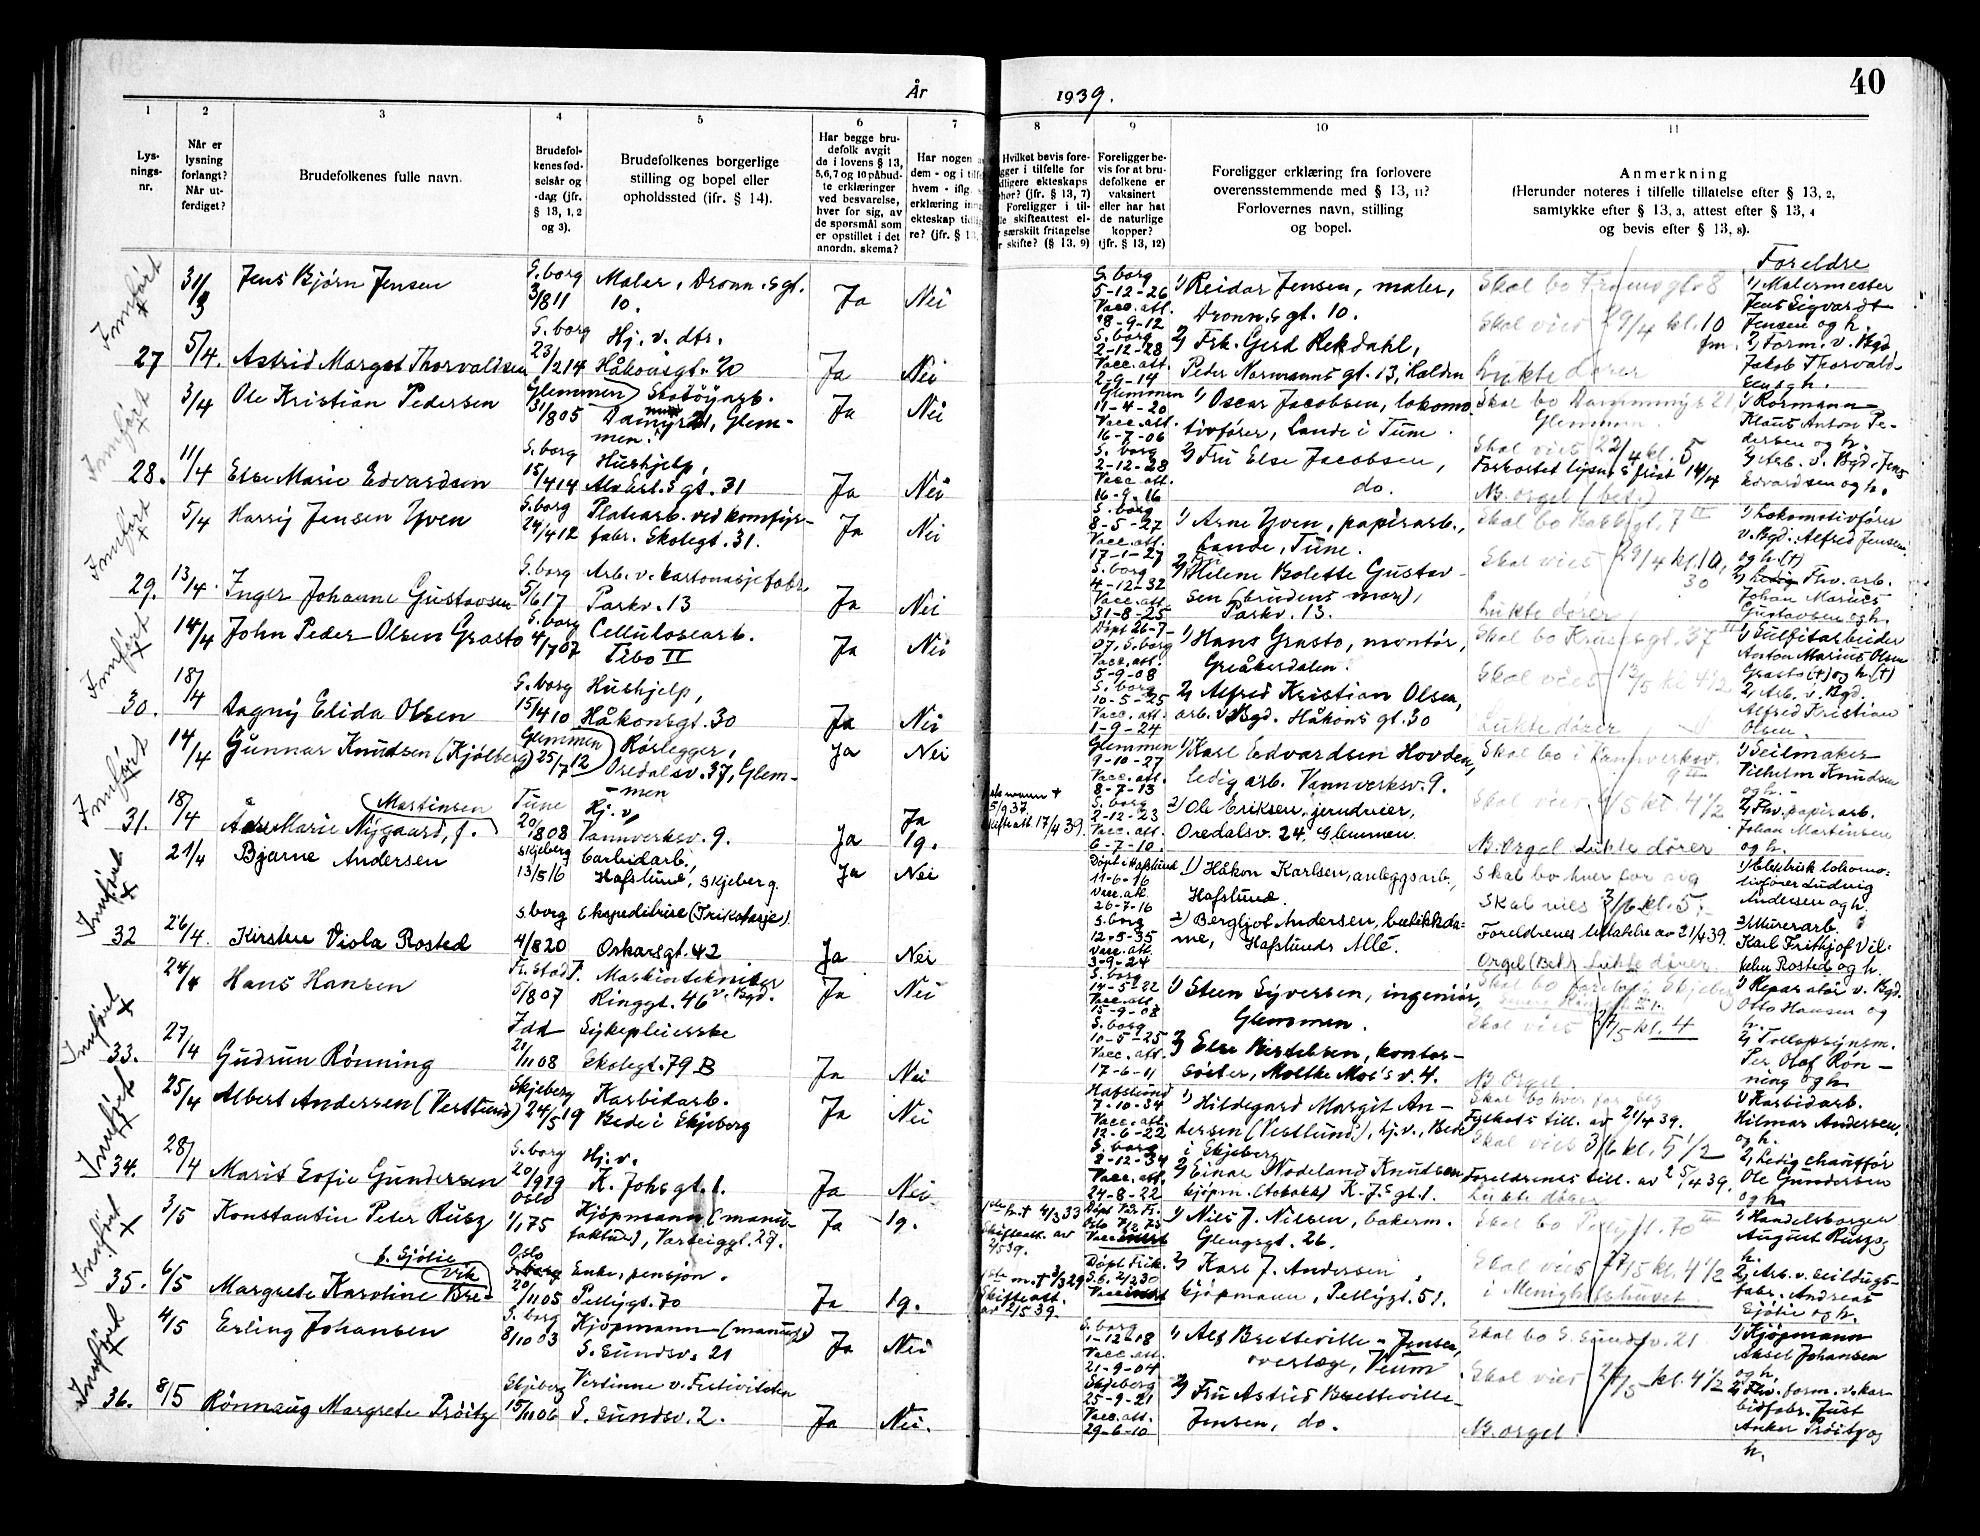 40
År 1939.
1 2 3 4 5 6 7 8 9 10 11
Lys-
nings-
nr.
Når er
lysning
forlangt?
Når ut-
ferdiget?
Brudefolkenes fulle navn.
Brudefol-
kenes fød-
selsår og
-dag (jfr.
§ 13, 1, 2
og 3).
Brudefolkenes borgerlige
stilling og bopel eller
opholdssted (jfr. § 14).
Har begge bru-
defolk avgit
de i lovens § 13,
5,6,7 og 10 påbud-
te erklæringer
ved besvarelse,
hver for sig, av
de spørsmål som
er opstillet i det
anordn. skema?
Har nogen
dem - og i
hvem - iflg.
erklæring
ekteskap
re? (jfr. § 13,
Hvilket bevis fore-
i tilfelle for
ekteskaps
(jfr. § 13, 7)
Foreligger i til-
skifteattest el-
særskilt fritagelse
skifte? (§ 13, 9)
Foreligger be-
vis for at bru-
defolkene er
vaksinert
eller har hat
de naturlige
kopper?
(jfr. § 13, 12)
Foreligger erklæring fra forlovere
overensstemmende med § 13, 11?
Forlovernes navn, stilling
og bopel.
Anmerkning
(Herunder noteres i tilfelle tillatelse efter § 13, 2,
samtykke efter § 13, 3, attest efter § 13, 4
og bevis efter § 13, 8).
Foreldre
Innført
27
31/3 Jens Bjørn Jensen
S.borg
3/8 11
Maler, Dronn.s gt.
10.
Ja Nei
S.borg
5-12-26
Vacc.att.
18-9-12
1) Reidar Jensen, maler,
Dronn.s gt. 10.
Skal vies 29/4 kl. 10
fm.
1) Malermester
Jens Sigvardt
Jensen og h.
5/4. Astrid Margot Thorvaldsen
S.borg
23/12 14
Hj. v. dtr.
Håkonsgt. 20
Ja Nei
S.borg
2-12-28
Vacc.att.
2-9-14
2) Frk. Gerd Rekdahl,
Peder Normanns gt. 13, Halden
Lukte dører
2) Form. v. Bgd
Jakob Thorvald-
sen og h.
Innført
28.
3/4 Ole Kristian Pedersen
Glemmen
31/8 05
Skotøynb.
Dammyr 21, Glem-
men.
Ja Nei
Glemmen
11-4-20
Vacc.att.
16-7-06
1) Oscar Jacobsen, lokomo-
tivfører, Lande i Tune.
Skal bo Dammyr 21
Glemmen.
Skal vies 22/4 kl. 5
1) Rormann
Klaus Anton Pe-
dersen og h.
11/4 Else Marie Edvardsen
S.borg
15/4 14
Hushjelp,
Alv Erl.s gt. 31
Ja Nei
S.borg
2-12-28
Vacc.att.
16-9-16
2) Fru Else Jacobsen,
do.
Forkortet lysn.s frist 14/4
NB. orgel (bet.)
2) Arb. v. Bgd. Jens
Edvardsen og h.
Innført
29.
5/4 Harry Jensen Yven
S.borg
24/4 12
Platearb. ved komfyr-
fabr. Skolegt. 31.
Ja Nei
S.borg
8-5-27
Vacc.att.
17-1-27
1) Arne Yven, papirarb.,
Lande, Tune.
Skal vies 29/4 kl. 10,
30
1) Lokomotivfører
v. Bgd. Alfred Jensen
og h. (†)
13/4. Inger Johanne Gustavsen
S.borg
5/6 17
Arb. v. kartonasjefabr.
Parkv. 13
Ja Nei
S.borg
4-12-32
Vacc.att.
31-8-25
2) Helene Bolette Gustav-
sen (brudens mor),
Parkv. 13.
Lukte dører
2) Fhv. arb.
Johan Marius
Gustavsen og h.
Innført
30.
14/4 John Peder Olsen Grasto
S.borg
4/7 07
Cellulosearb.
Tibo II
Ja Nei
Døpt 26-7-
07, S.borg
Vacc.att.
5-9-08
1) Hans Grasto, montør,
Greåkerdalen.
Skal bo Kruses gt. 37 II
Skal vies 13/5 kl. 4 1/2
1) Sulfitarbeider
Anton Marius Olsen
Grasto (†) og h. (†)
18/4 Dagny Elida Olsen
S.borg
15/4 10
Hushjelp,
Håkonsgt. 30
Ja Nei
S.borg
10-5-25
Vacc.att.
1-9-24
2) Alfred Kristian Olsen,
arb. v. Bgd. Håkons gt. 30
Lukte dører
2) Arb. v. Bgd.
Alfred Kristian
Olsen.
Innført
31.
14/4 Gunnar Knudsen (Kjølberg)
Glemmen
25/7 12
Rørlegger,
Oredalsv. 37, Glem-
men
Ja Nei
Glemmen
9-10-27
Vacc.att.
8-7-13
1) Karl Edvardsen Hovden,
ledig arb. Vannverksv. 9.
Skal bo i Vannverksv.
9 II
Skal vies 6/5 kl. 4 1/2
1) Seilmaker
Vilhelm Knudsen
og h.
18/4 Åse Marie Nygaard, f. Martinsen
Tune
20/8 08
Hj. v,
Vannverksv. 9.
Ja Ja
1g.
5/9 37
Skifteatt. 17/4 39.
S.borg
2-12-23
Vacc.att.
6-7-10.
2) Ole Eriksen, jerndreier,
Oredalsv. 24, Glemmen.
NB. Orgel Lukte dører
2) Fhv. papirarb.
Johan Martinsen
og h.
Innført
32
21/4 Bjarne Andersen
Skjeberg
13/5 16
Carbidarb.,
Hafslund, Skjeberg.
Ja Nei
Døpt i Hafslund
11-6-16
Vacc.att.
26-7-16
1) Håkon Karlsen, anleggsarb.,
Hafslund.
Skal bo hver for seg
Skal vies 3/6 kl. 5.
1) Elektrisk lokomo-
tivfører Ludvig
Andersen og h.
26/4. Kirsten Viola Rosted
S.borg
4/8 20
Ekspeditrise (Trikotasje)
Oskarsgt. 42
Ja Nei
S.borg
12-5-35
Vacc.att.
3-9-24
2) Bergljot Andersen, butikkda-
me, Hafslunds Allé.
Foreldrenes tillatelse av 21/4 39.
Orgel (Bet.) Lukte dører
2) Murerarb.
Karl Frithjof Vil-
helm Rosted og h.
Innført
33.
24/4 Hans Hansen
Fr.stad
5/8 07
Maskintekniker
v. Bgd.
Ringgt. 46
Ja Nei
S.borg
14-5-22
Vacc.att.
15-9-08
1) Steen Syversen, ingeniør,
Glemmen.
Skal vies 27/5 kl. 4
1) Reparatør v. Bgd.
Otto Hansen og
h.
27/4 Gudrun Rønning
Idd
21/11 08
Sykepleierske
Skolegt. 79 B
Ja Nei
S.borg
10-5-25
Vacc.att.
17-6-11
2) Else Bertelsen, kontor-
søster, Moltke Moe's v. 4.
NB. Orgel.
2) Tolloppsynsm.
Per Olaf Røn-
ning og h.
Innført
34.
25/4 Albert Andersen (Vestlund)
Skjeberg
24/5 19
Karbidarb.
Bede i Skjeberg
Ja Nei
Hafslund
7-10-34
Vacc.att.
12-6-22
1) Hildegard Margit An-
dersen (Vestlund), hj. v., Bede
i Skjeberg
Skal bo hver for seg
Fylkets till. av 21/4 39.
Skal vies 3/6 kl. 5 1/2
1) Karbidarb.
Hilmar Andersen,
og h.
28/4 Marit Sofie Gundersen
S.borg
20/9 19
Hj. v.
K. Johs gt. 1.
Ja Nei
S.borg
2-12-34
Vacc.att.
24-8-22
2) Einar Nodeland Knutsen,
kjøpm. (tobakk) K. J.s gt. 1.
Foreldrenes till. av 25/4 39.
Lukte dører
2) Ledig chauffør
Ole Gundersen
og h.
Innført
35.
3/5 Konstantin Peter Rusz
Oslo
1/1 75
Kjøpmann (manu-
faktur), Varteiggt. 29.
Ja 1g.
4/3 33
Skifteatt. av
2/5 39.
1) Nils J. Nilsen, bakerm.
Glengsgt. 26.
Skal bo Pellygt. 70 II
Skal vies 27/5 kl. 4 1/2
1) Handelsborger
August Rusz og
h.
6/5 Margrete Karoline Bre-
vik
f. Sjølie
Oslo
20/11 05
Enke, pensjon.
Pellygt. 70
Ja 1g.
Skifteatt.
av 2/5 39.
2) Karl J. Andersen,
kjøpmann, Pellygt. 51.
i Menighetshuset
2) Arb. v. seildugs-
fabr. Andreas
Sjølie og h.
Innført
36.
4/5 Erling Johansen
S.borg
8/10 03
Kjøpmann (manuf.)
S. Sundsv. 21
Ja Nei
S.borg
1-12-18
Vacc.att.
21-9-04
1) Alf Bretteville-Jensen,
overlæge, Veum
Skal bo S. Sundsv. 21
Skal vies 27/5 kl. 4 1/2
1) Kjøpmann
Aksel Johansen
og h.
8/5 Rønnaug Margrete Trøitz
Skjeberg
15/11 06
Vertinne v. Festiviteten
S. Sundsv. 2.
Ja Nei.
Skjeberg
25-9-21
Vacc.att.
29-6-10
2) Fru Astrid Bretteville-
Jensen, do.
NB. orgel
2) Fhv. form. v. kar-
bidfabr. Just
Anker Trøitz og
h.